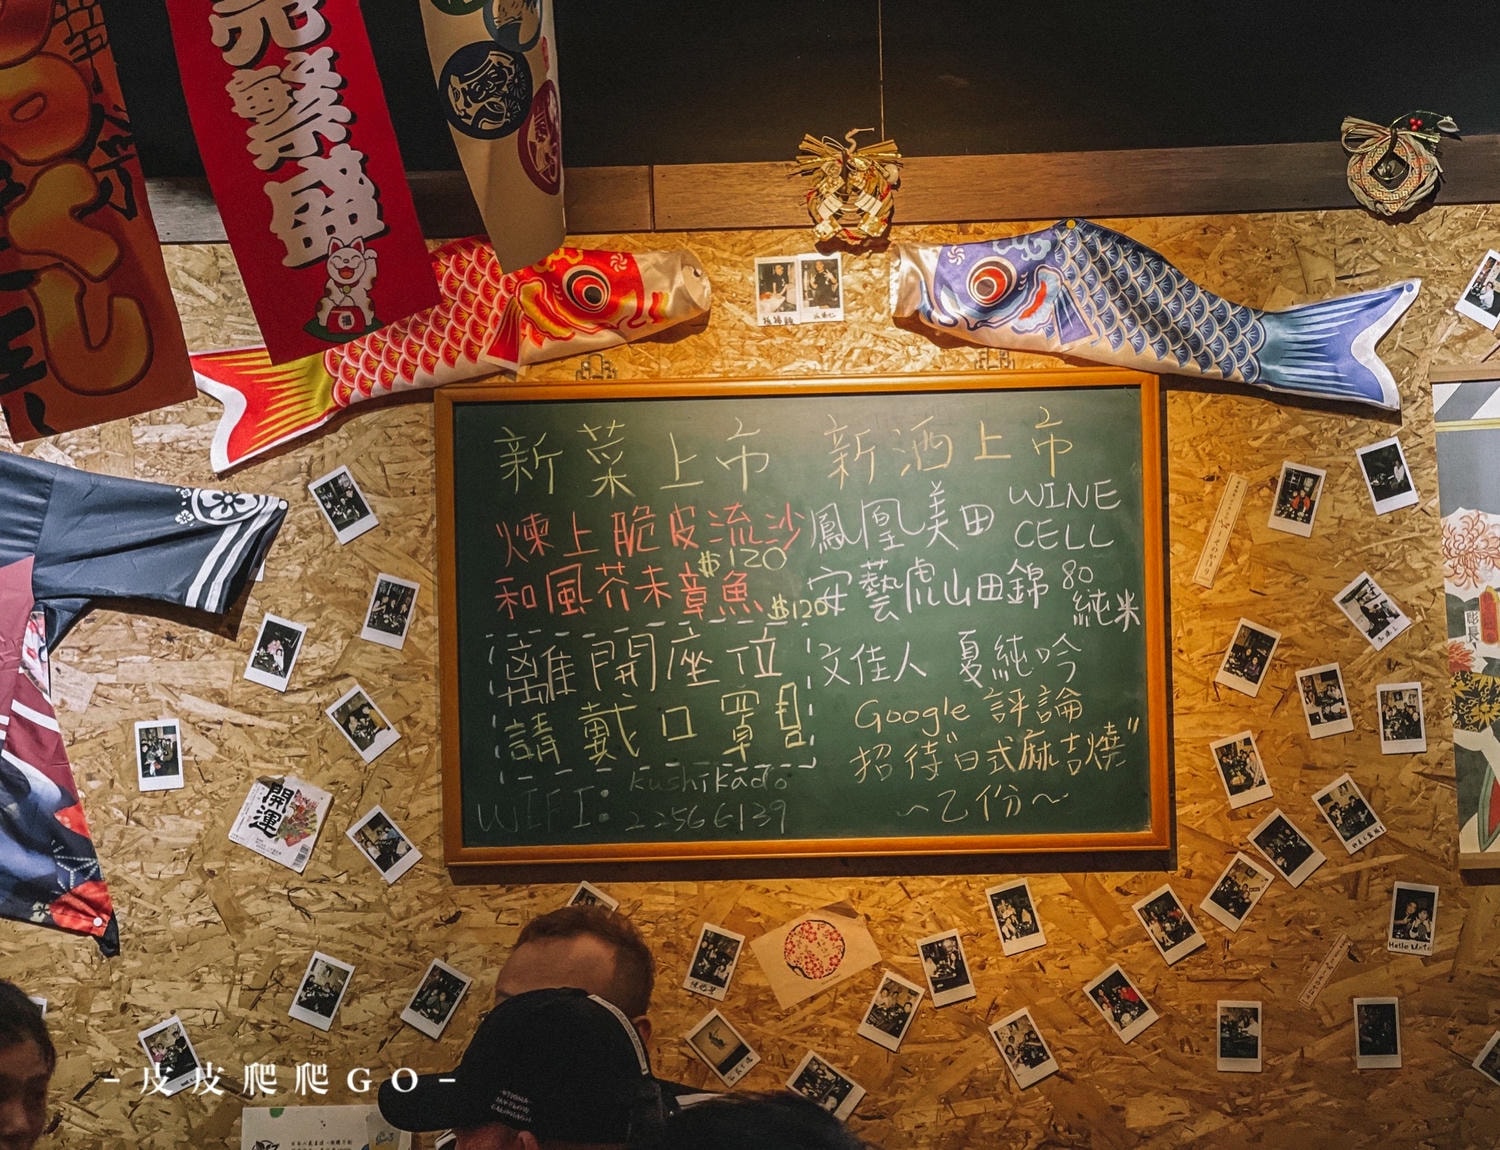 元
繁
盛
福
新菜上市
煉上脆皮流沙
$120
和風芥末章魚
$120
離開座位
請戴口罩
kushikado
WIFI: 22566139
新酒上市
鳳凰美田 WINE
CELL
安藝虎山田錦 80
純米
文佳人 夏純吟
Google 評論
招待"日式麻吉燒"
~乙份~
開運
Hello
-皮皮爬爬GO-